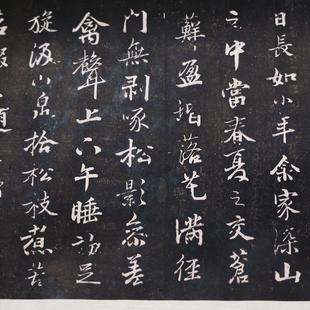 日長如小年余家深山
之中當春夏之交蒼
蘚盈堦落花滿徑
門無剥啄松影參差
禽聲上下午睡初足
旋汲山泉拾松枝煮苦